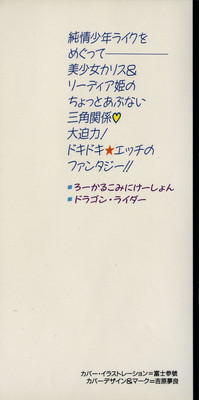 純情少年ライクを
めぐって────
美少女カリス&
リーディア姫の
ちょっとあぶない
三角関係♡
大迫力!
ドキドキ★エッチの
ファンタジー!!
■ろーかるこみにけーしょん
■ドラゴン・ライダー
カバー・イラストレーション=富士参號
カバーデザイン&マーク=吉原夢良